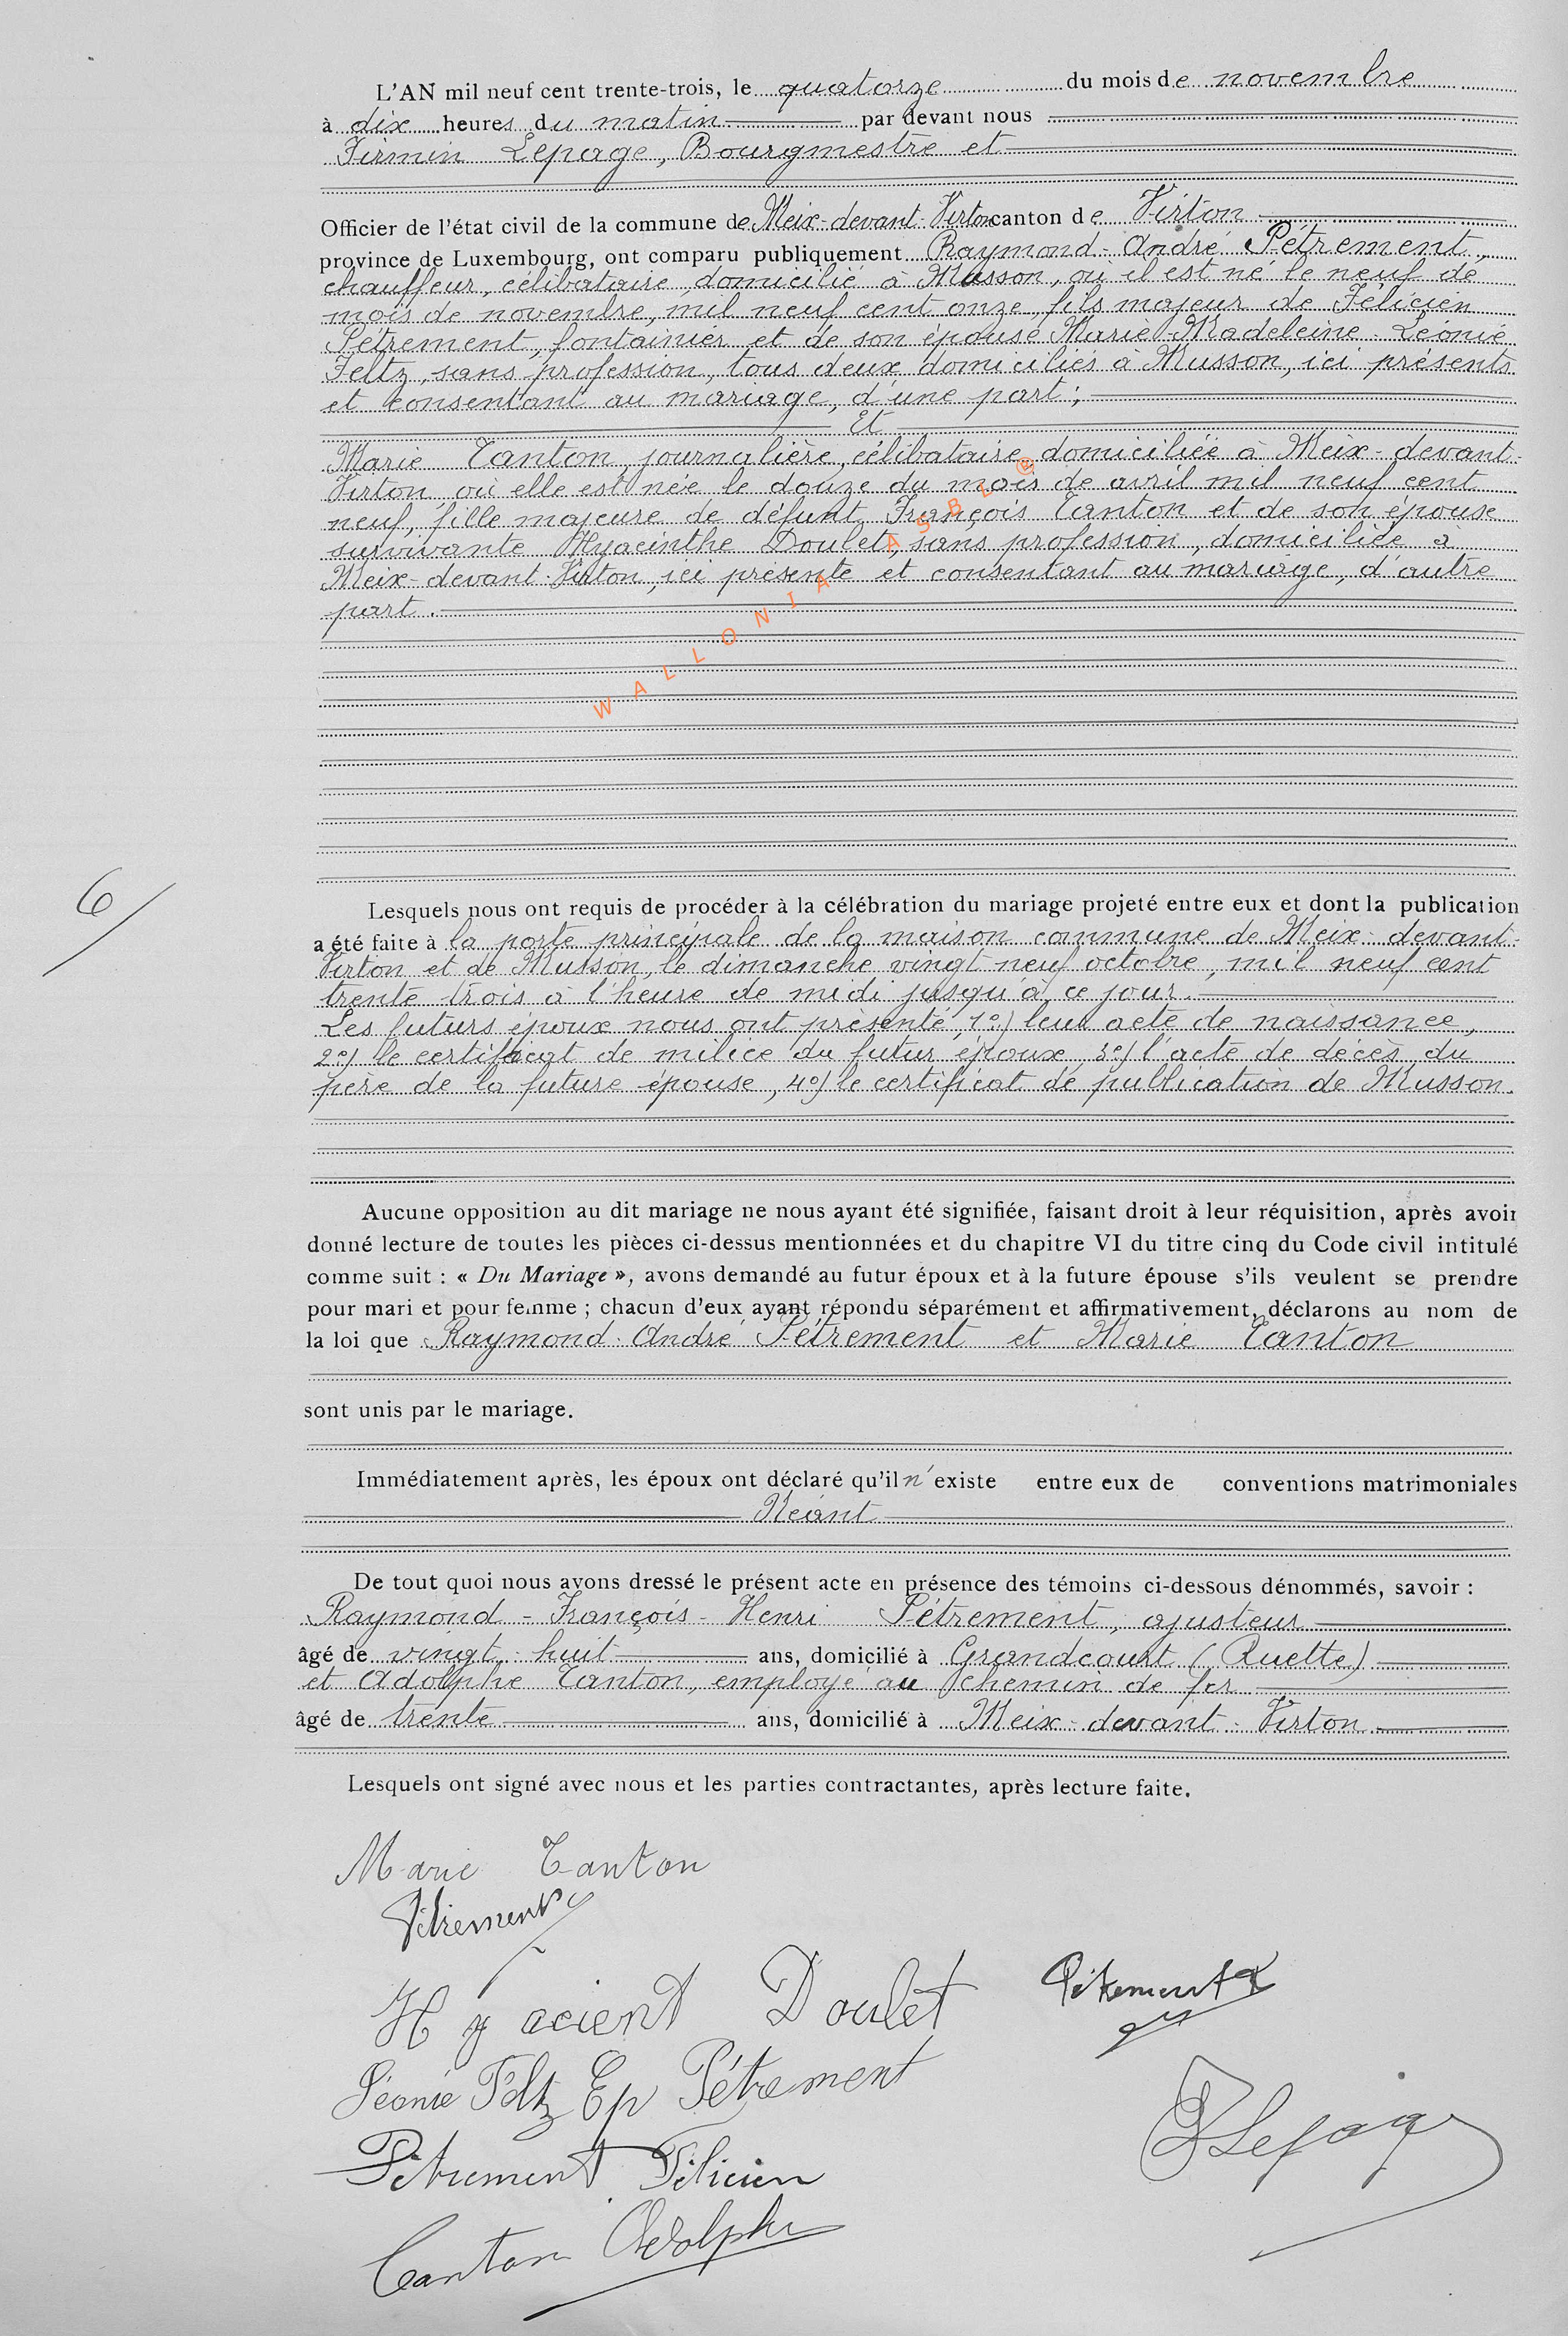 L'AN mil neuf cent trente-trois, le quatorze du mois de novembre
à dix heures du matin par devant nous
Firmin Lepage, Bourgmestre et
Officier de l'état civil de la commune de Meix-devant-Virton canton de Virton
province de Luxembourg, ont comparu publiquement Raymond-André Pétrement,
chauffeur, célibataire, domicilié à Musson, où il est né le neuf de
mois de novembre, mil neuf cent onze, fils majeur de Félicien
Pétrement, fontainier et de son épouse Marie-Madeleine-Léonie
Feltz, sans profession, tous deux domiciliés à Musson, ici présents
et consentant au mariage, d'une part;
Et
Marie Tanton, journalière, célibataire, domiciliée à Meix-devant-
Virton où elle est née le douze du mois de avril mil neuf cent
neuf, fille majeure de défunt François Tanton et de son épouse
survivante Hyacinthe Doulet, sans profession, domiciliée à
Meix-devant-Virton, ici présente et consentant au mariage, d'autre
part.
WALLONIA ASBL ®
6/
Lesquels nous ont requis de procéder à la célébration du mariage projeté entre eux et dont la publication
a été faite à la porte principale de la maison commune de Meix-devant-
Virton et de Musson, le dimanche vingt neuf octobre, mil neuf cent
trente trois à l'heure de midi jusqu'à ce jour.
Les futurs époux nous ont présenté, 1°) leur acte de naissance,
2°) le certificat de milice du futur époux, 3°) l'acte de décès du
père de la future épouse, 4°) le certificat de publication de Musson.
Aucune opposition au dit mariage ne nous ayant été signifiée, faisant droit à leur réquisition, après avoir
donné lecture de toutes les pièces ci-dessus mentionnées et du chapitre VI du titre cinq du Code civil intitulé
comme suit : « Du Mariage », avons demandé au futur époux et à la future épouse s'ils veulent se prendre
pour mari et pour femme ; chacun d'eux ayant répondu séparément et affirmativement, déclarons au nom de
la loi que Raymond-André Pétrement et Marie Tanton
sont unis par le mariage.
Immédiatement après, les époux ont déclaré qu'il n'existe entre eux de conventions matrimoniales
Néant
De tout quoi nous avons dressé le présent acte en présence des témoins ci-dessous dénommés, savoir :
Raymond-François-Henri Pétrement, ajusteur
âgé de vingt-huit ans, domicilié à Grandcourt (Ruette)
et Adolphe Tanton, employé au chemin de fer
âgé de trente ans, domicilié à Meix-devant-Virton
Lesquels ont signé avec nous et les parties contractantes, après lecture faite.
Marie Tanton
Pétrement
Hyacient Doulet Pétrement
Léonie Feltz Ep Pétrement
FLepage
Pétrement Félicien
Tanton Adolphe